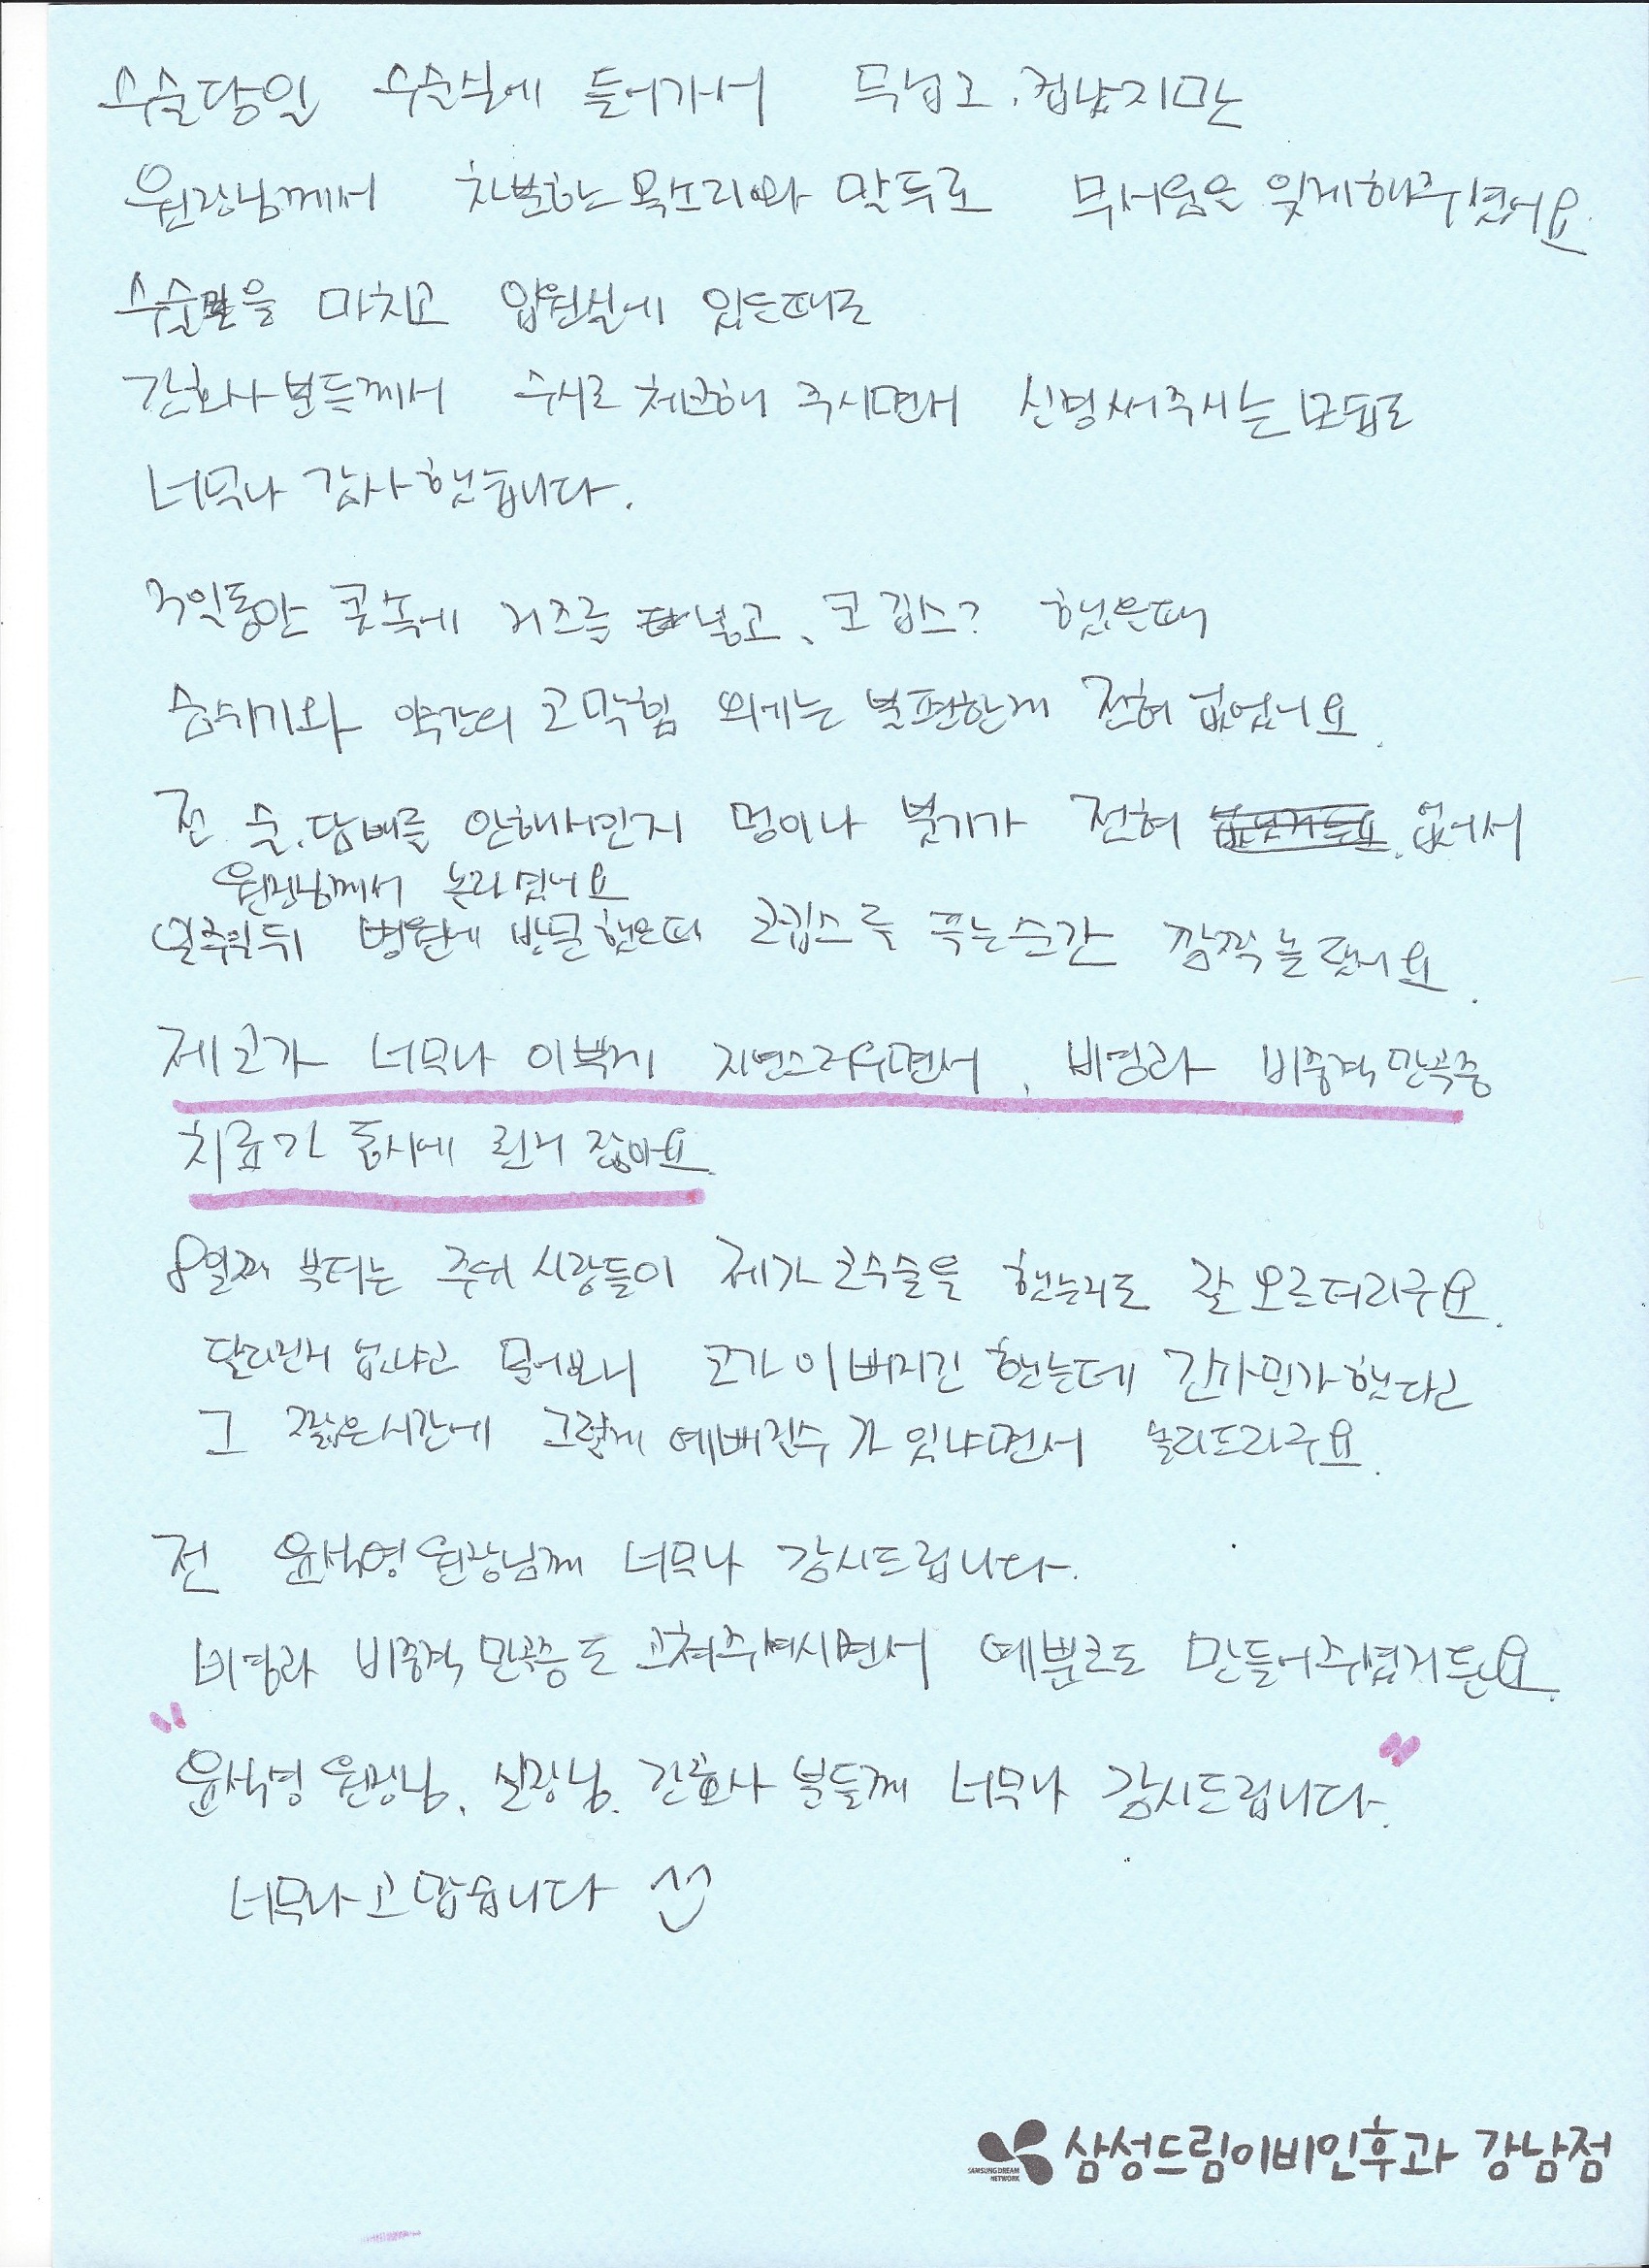 수술당일 수술실에 들어가서 두렵고, 겁났지만
원장님께서 차분한 목소리와 말투로 무서움은 잊게해주셨어요.
수술을 마치고 입원실에 있을때도
간호사분들께서 수시로 체크해 주시면서 신경써주시는 모습도
너무나 감사했습니다.
3일동안 콧속에 거즈를 넣고, 코깁스? 했을때
숨쉬기와 약간의 코막힘 외에는 불편한게 전혀 없었어요.
전 술, 담배를 안해서인지 멍이나 붓기가 전혀 없어서
원장님께서 놀라셨어요
일주일뒤 병원에 방문했을때 코깁스를 푸는순간 깜짝놀랬어요.
제코가 너무나 이쁘게 자연스러우면서, 비염과 비중격만곡증
치료가 동시에 된거 잖아요.
8일째 부터는 주위 사람들이 제가 코수술을 했는지도 잘 모르더라구요.
달라진거 없냐고 물어보니 코가 이뻐지긴 했는데 긴가민가했다고
그 짧은시간에 그렇게 예뻐질수가 있냐면서 놀라드라구요.
전 윤석영원장님께 너무나 감사드립니다.
비염과 비중격만곡증도 고쳐주셔시면서 예쁜코도 만들어주셨거든요.
"윤석영원장님, 실장님, 간호사 분들께 너무나 감사드립니다."
너무나고맙습니다
삼성드림이비인후과 강남점
SAMSUNG DREAM
NETWORK